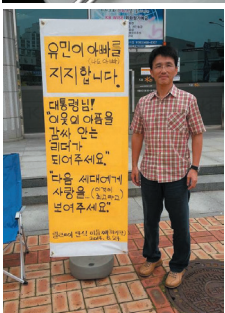 유민이 아빠를
지지합니다.
대통령님!
"이웃의 아픔을
감싸 안는
리더가
되어주세요."
"다음 세대에게
사랑을
보여주세요."